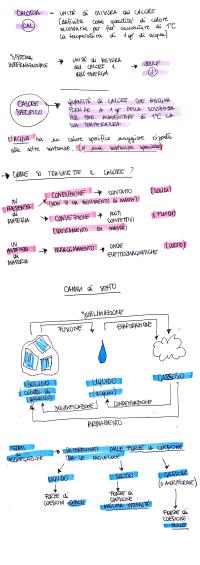 CALORIA → UNITÀ DI MISURA DEL CALORE
(CAL) (definita come quantità di calore
necessaria per far aumentare di 1°C
la temperatura di 1 gr di acqua)
SISTEMA INTERNAZIONALE → UNITÀ DI MISURA DEL CALORE E DELL'ENERGIA → JOULE (J)
CALORE SPECIFICO → QUANTITÀ DI CALORE CHE BISOGNA
FORNIRE A 1 gr DELLA SOSTANZA
PER FAR AUMENTARE DI 1°C LA
SUA TEMPERATURA
L'ACQUA ha un calore specifico maggiore rispetto
alle altre sostanze.
→ COME SI TRASMETTE IL CALORE?
IN PRESENZA DI MATERIA
CONDUZIONE → CONTATTO (SOLIDI)
(NON C'È MOVIMENTO DI MASSA)
CONVEZIONE → MOTI CONVETTIVI (FLUIDI)
(SPOSTAMENTO DI MASSA)
IN ASSENZA DI MATERIA → IRRAGGIAMENTO → ONDE ELETTROMAGNETICHE (VUOTO)
CAMBI DI STATO
SUBLIMAZIONE
FUSIONE EVAPORAZIONE
SOLIDO LIQUIDO GASSOSO
(acqua)
SOLIDIFICAZIONE CONDENSAZIONE
BRINAMENTO
STATI DI AGGREGAZIONE → DETERMINATI DALLE FORZE DI COESIONE
TRA LE MOLECOLE
LIQUIDO SOLIDO GASSOSO
(O AERIFORME)
FORZE DI COESIONE DEBOLI
FORZE DI COESIONE MASSIMA INTENSITÀ
FORZE DI COESIONE NULLE